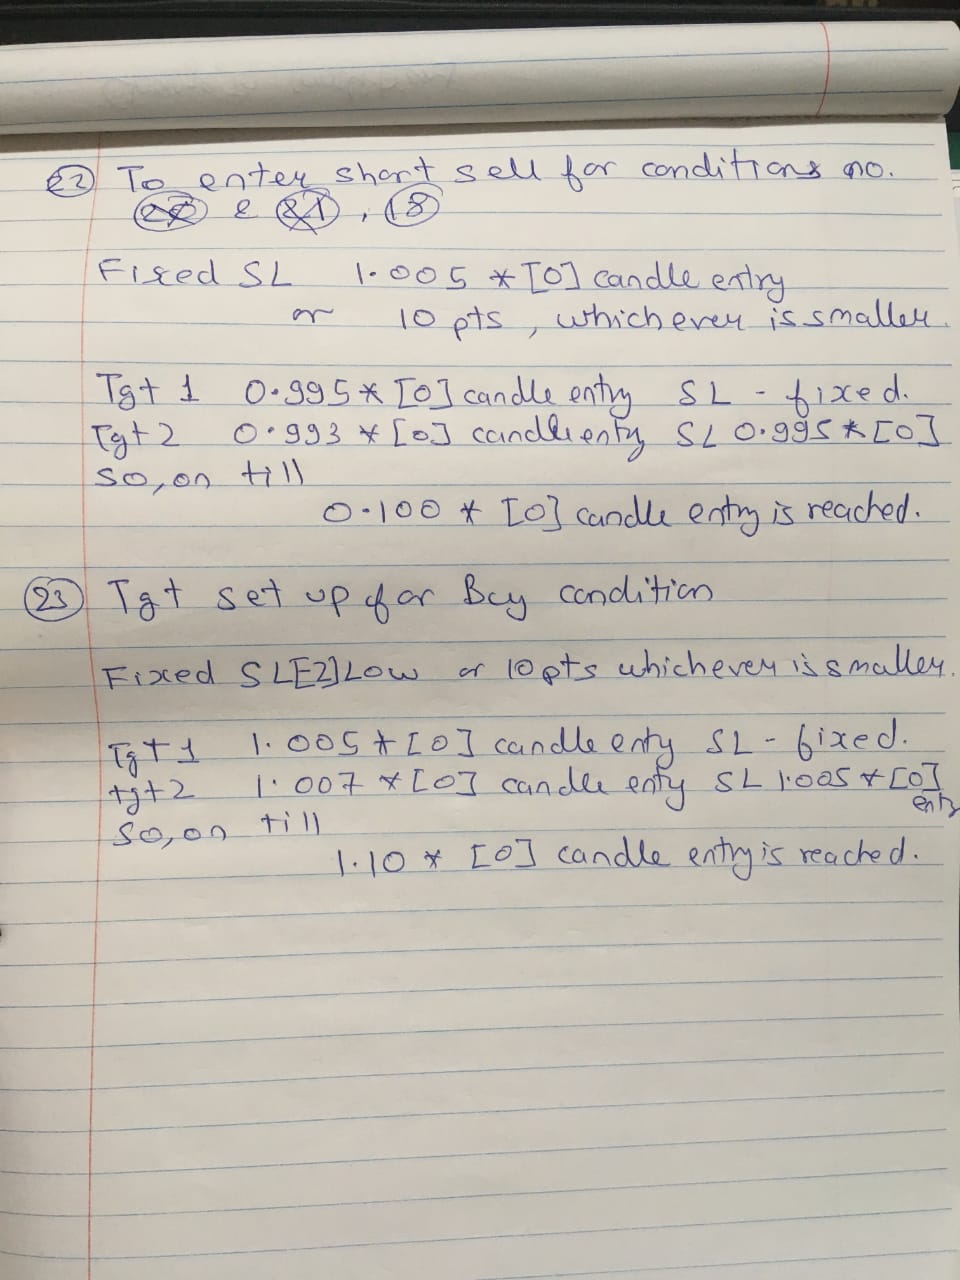 22 To enter short sell for conditions no.
20 & 21, 18
Fixed SL 1.005 * [0] candle entry
or 10 pts, whichever is smaller.
Tgt 1 0.995 * [0] candle entry SL - fixed.
Tgt 2 0.993 * [0] candle enty SL 0.995 * [0]
so, on till
0.100 * [0] candle entry is reached.
23 Tgt set up for Bcy condition
Fixed SL [2] Low or 10 pts whichever is smaller.
Tgt 1 1.005 * [0] candle enty SL - fixed.
tgt 2 1.007 * [0] candle enty SL 1.005 * [0]
enty
So, on till
1.10 * [0] candle entry is reached.